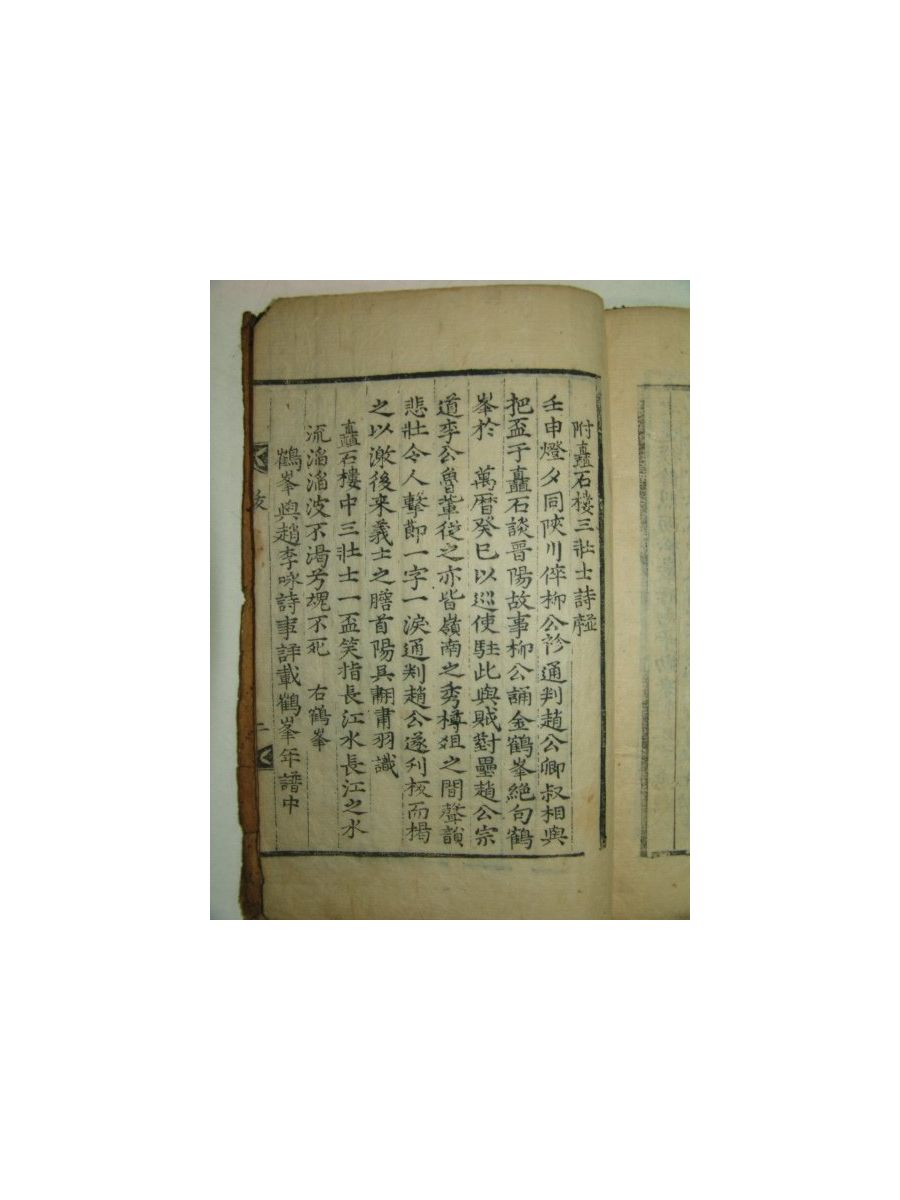 附矗石樓三壯士詩韻
壬申燈夕同陜川倅柳公診通判趙公卿叔相與
把盃于矗石談晋陽故事柳公誦金鶴峯絶句鶴
峯於 萬曆癸巳以巡使駐此與賊對壘趙公宗
道李公魯輩從之亦皆嶺南之秀樽俎之間聲韻
悲壯令人擊節一字一淚通判趙公遂刋板而揭
之以激後來義士之膽首陽吳翿肅羽識
矗石樓中三壯士一盃笑指長江水長江之水
流滔滔波不渴兮魂不死 右鶴峯
鶴峯與趙李咏詩事詳載鶴峯年譜中
跋
二